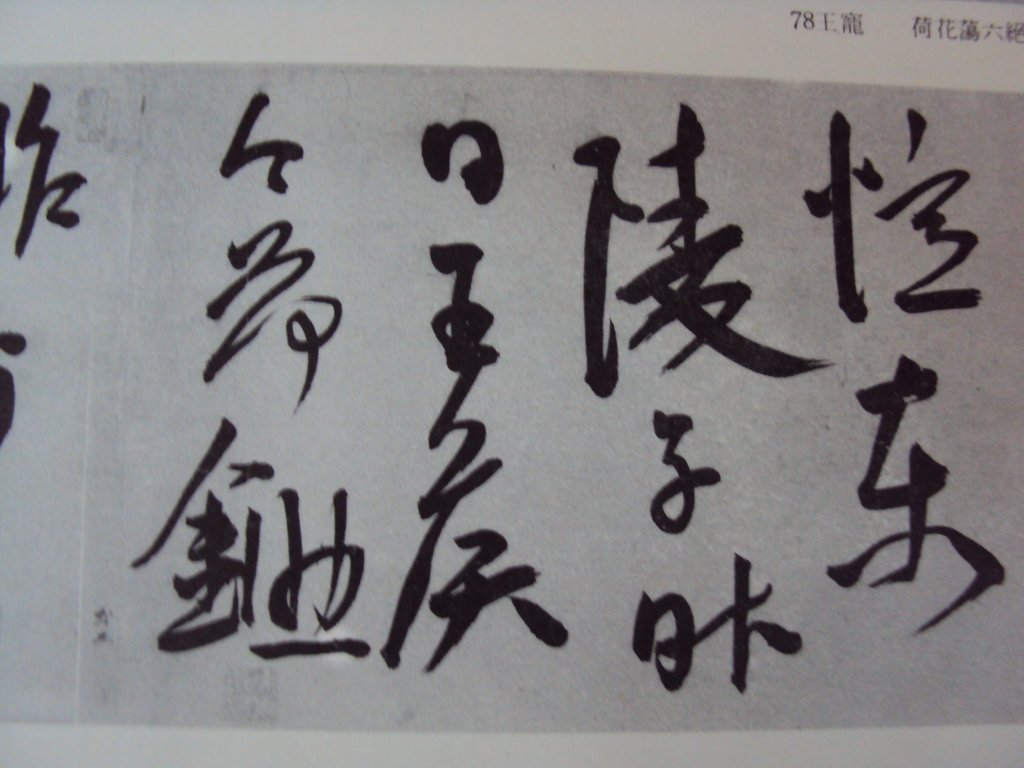 78王寵 荷花蕩六絕
憶東
陵子昨
日王侯
今荷鋤